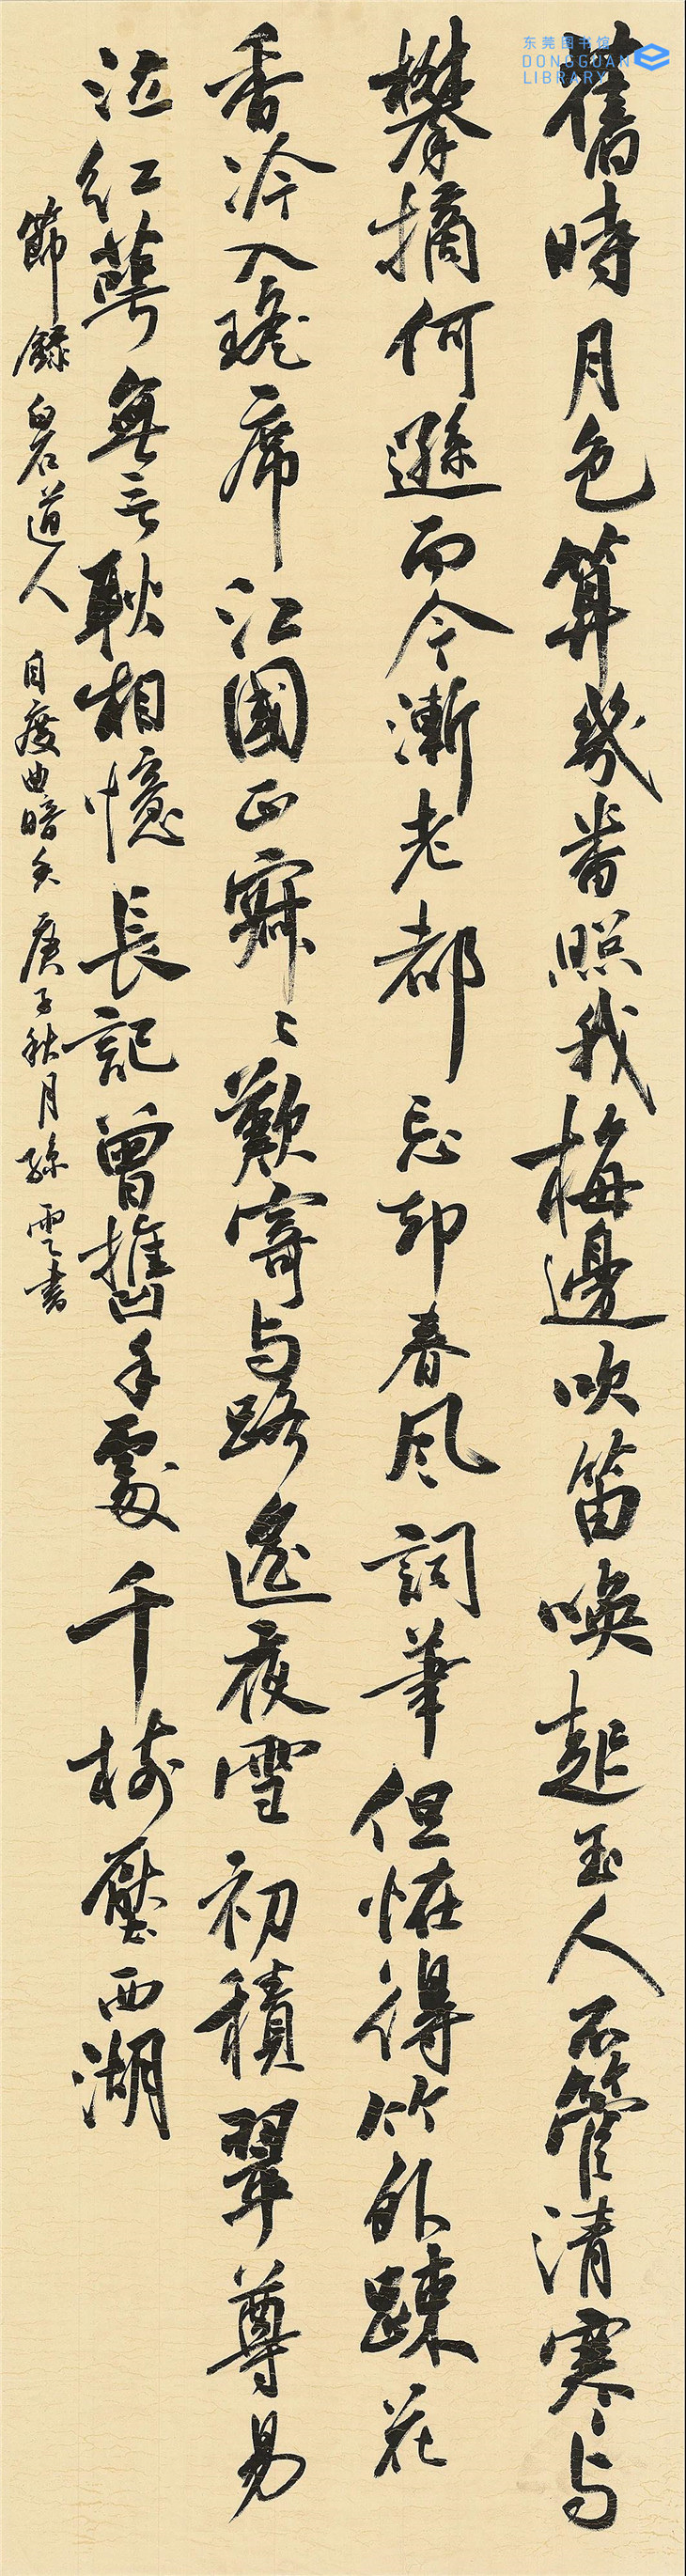 东莞图书馆
DONGGUAN
LIBRARY
舊時月色算幾番照我梅邊吹笛喚起玉人不管清寒与
攀摘何遜而今漸老都忘却春风詞筆但恠得竹外踈花
香冷入瑤席江國正寂寂歎寄与路遙夜雪初積翠尊易
泣紅萼無言耿相憶長記曾攜手處千樹壓西湖
節錄白石道人自度曲暗香庚子秋月孫雲书